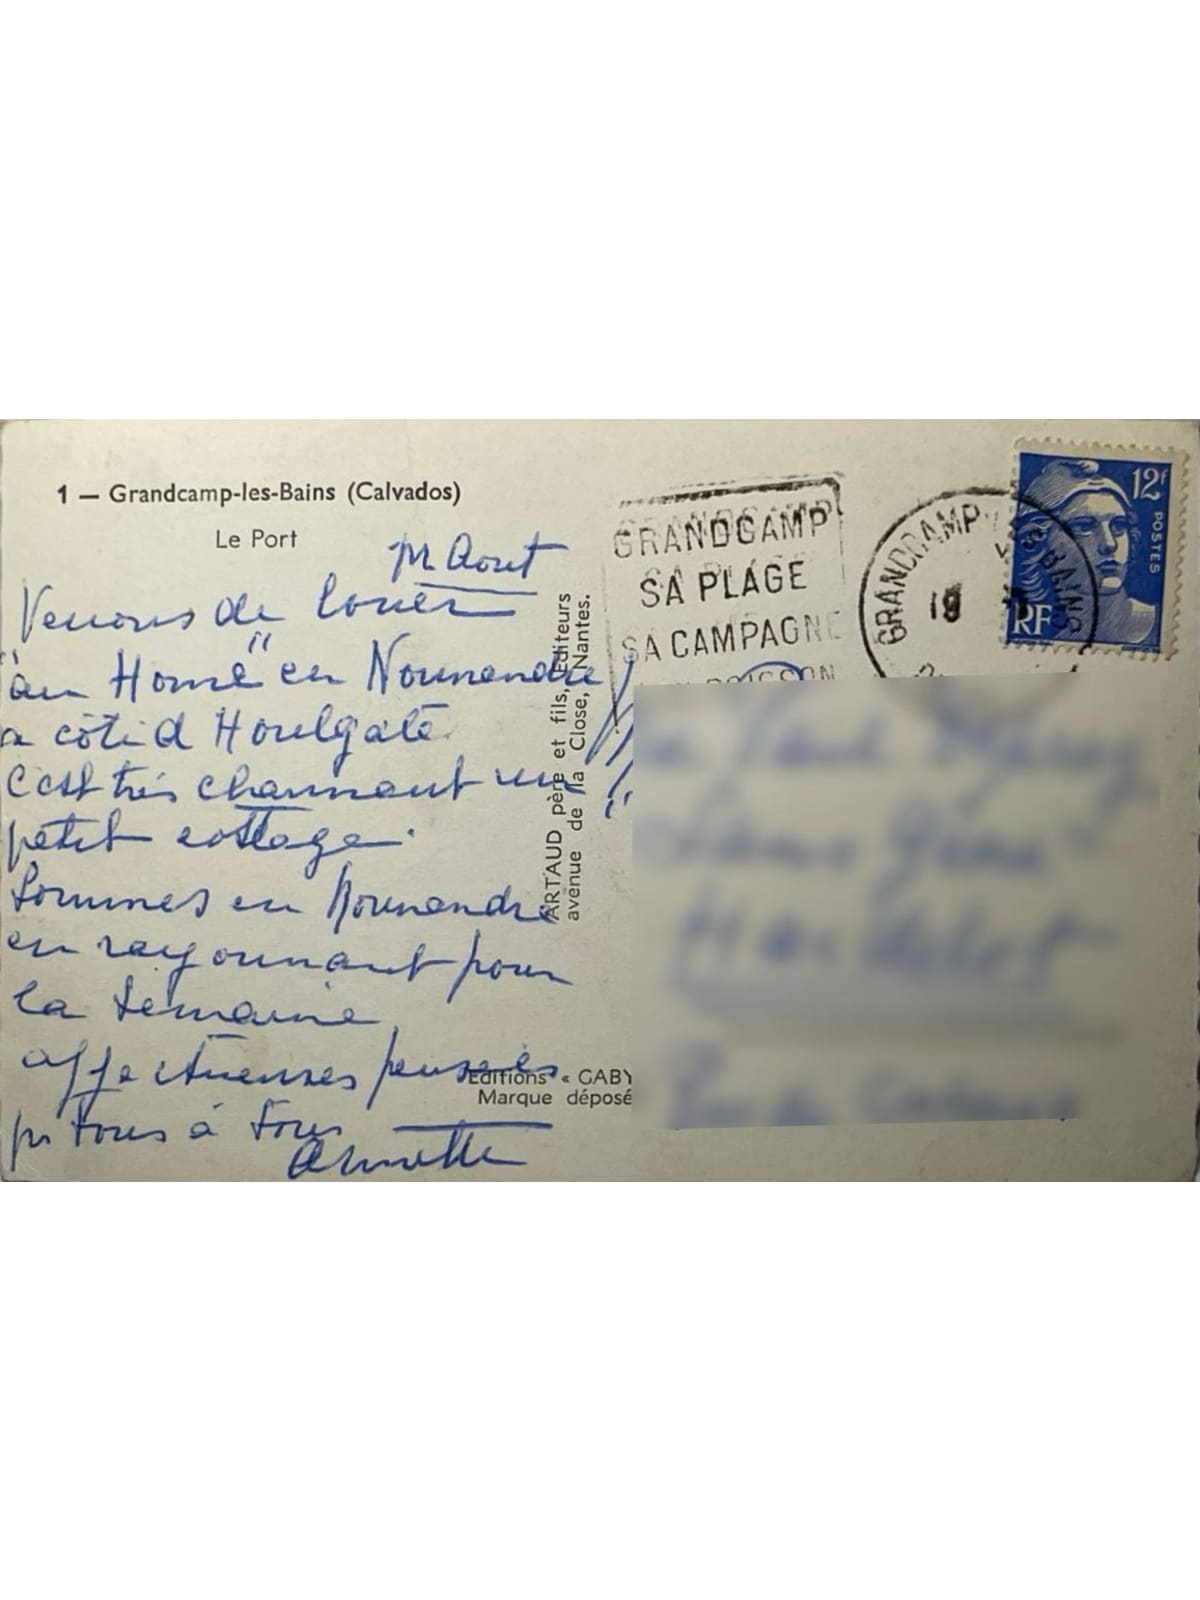 1 — Grandcamp-les-Bains (Calvados)
Le Port
pr Aout
Venons de louer
"au Home" en Normandie
a côté d Houlgate
c'est très charmant un
petit cottage.
Sommes en Normandie
en rayonnant pour
la semaine
affectueuses pensées
pr tous à tous
Annette
ARTAUD père et fils, Éditeurs
avenue de la Close, Nantes.
Editions « GABY
Marque déposé
GRANDCAMP
SA PLAGE
SA CAMPAGNE
POISSON
GRANDCAMP LES BAINS
19
12f
POSTES
RF